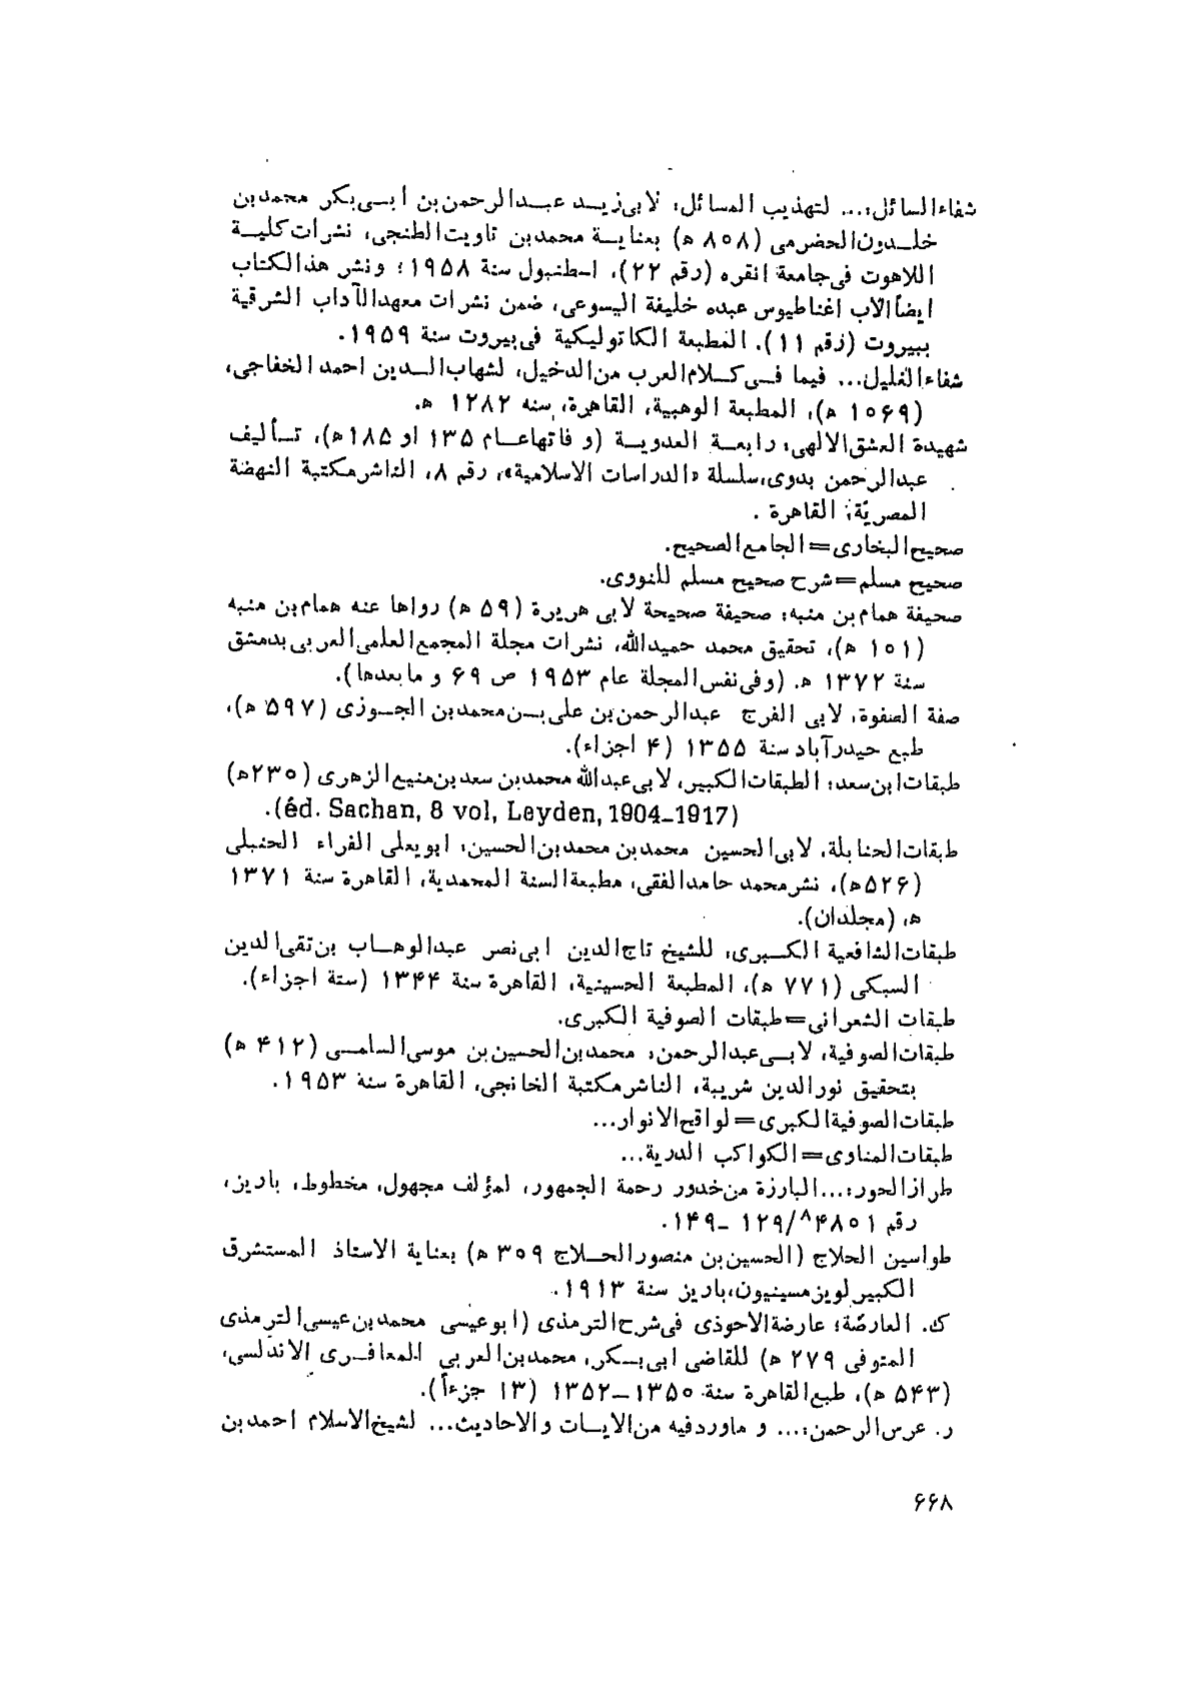 شفاءالسائل:... لتهذیب المسائل، لابی‌زیـد عبـدالرحمن‌بن ابـی‌بکر محمدبن
خلـدون‌الحضرمی (۸۰۸ ه) بعنایـة محمدبن تاویت‌الطنجی، نشرات‌کلیـة
اللاهوت فی‌جامعة انقره (رقم ۲۲)، اسطنبول سنة ۱۹۵۸؛ ونشر هذالکتاب
ایضاً الاب اغناطیوس عبده خلیفة الیسوعی، ضمن نشرات معهدالآداب الشرقیة
ببیروت (رقم ۱۱). المطبعة الکاتولیکیة فی‌بیروت سنة ۱۹۵۹.
شفاءالغلیل... فیما فـی‌کـلام‌العرب من‌الدخیل، لشهاب‌الـدین احمد الخفاجی،
(۱۰۶۹ ه)، المطبعة الوهبیة، القاهرة، سنه ۱۲۸۲ ه.
شهیدة العشق‌الالهی، رابعـة العدویـة (و فاتهاعـام ۱۳۵ او ۱۸۵ه)، تـألیف
عبدالرحمن بدوی،سلسلة «الدراسات الاسلامیة»، رقم ۸، الناشرمکتبة النهضة
المصریّة، القاهرة .
صحیح‌البخاری=الجامع‌الصحیح.
صحیح مسلم=شرح صحیح مسلم للنووی.
صحیفة همام‌بن منبه: صحیفة صحیحة لابی هریرة (۵۹ ه) رواها عنه همام‌بن منبه
(۱۰۱ ه)، تحقیق محمد حمیدالله، نشرات مجلة المجمع‌العلمی‌العربی‌بدمشق
سنة ۱۳۷۲ ه. (وفی‌نفس‌المجلة عام ۱۹۵۳ ص ۶۹ و مابعدها).
صفة الصفوة، لابی الفرج عبدالرحمن‌بن علی‌بـن‌محمدبن الجـوزی (۵۹۷ ه)،
طبع حیدرآباد سنة ۱۳۵۵ (۴ اجزاء).
طبقات‌ابن‌سعد: الطبقات‌الکبیر، لابی‌عبدالله محمدبن سعدبن‌منیع‌الزهری (۲۳۰ه)
(éd. Sachan, 8 vol, Leyden, 1904-1917).
طبقات‌الحنابلة، لابی‌الحسین محمدبن محمدبن‌الحسین، ابویعلی الفراء الحنبلی
(۵۲۶ه)، نشرمحمد حامدالفقی، مطبعةالسنة المحمدیة، القاهرة سنة ۱۳۷۱
ه، (مجلدان).
طبقات‌الشافعیة الکـبری، للشیخ تاج‌الدین ابی‌نصر عبدالوهـاب بن‌تقی‌الدین
السبکی (۷۷۱ ه)، المطبعة الحسینیة، القاهرة سنة ۱۳۴۴ (ستة اجزاء).
طبقات الشعرانی=طبقات الصوفیة الکبری.
طبقات‌الصوفیة، لابـی‌عبدالرحمن، محمدبن‌الحسین‌بن موسی‌السلمـی (۴۱۲ ه)
بتحقیق نورالدین شریبة، الناشرمکتبة الخانجی، القاهرة سنة ۱۹۵۳.
طبقات‌الصوفیةالکبری=لواقح‌الانوار...
طبقات‌المناوی=الکواکب الدریة...
طرازالحور:...البارزة من‌خدور رحمة الجمهور، لمؤلف مجهول، مخطوط، باریز،
رقم ۴۸۰۱^۸/۱۲۹ -۱۴۹.
طواسین الحلاج (الحسین‌بن منصورالحـلاج ۳۰۹ ه) بعنایة الاستاذ المستشرق
الکبیرلویزمسینیون،باریز سنة ۱۹۱۳.
ك. العارضة؛ عارضةالاحوذی فی‌شرح‌الترمذی (ابوعیسی محمدبن‌عیسی‌الترمذی
المتوفی ۲۷۹ ه) للقاضی ابی‌بـکر، محمدبن‌العربی المعافـری الاندلسی،
(۵۴۳ ه)، طبع‌القاهرة سنة ۱۳۵۰-۱۳۵۲ (۱۳ جزءاً).
ر. عرس‌الرحمن:... و ماوردفیه من‌الایـات والاحادیث... لشیخ‌الاسلام احمدبن
۶۶۸